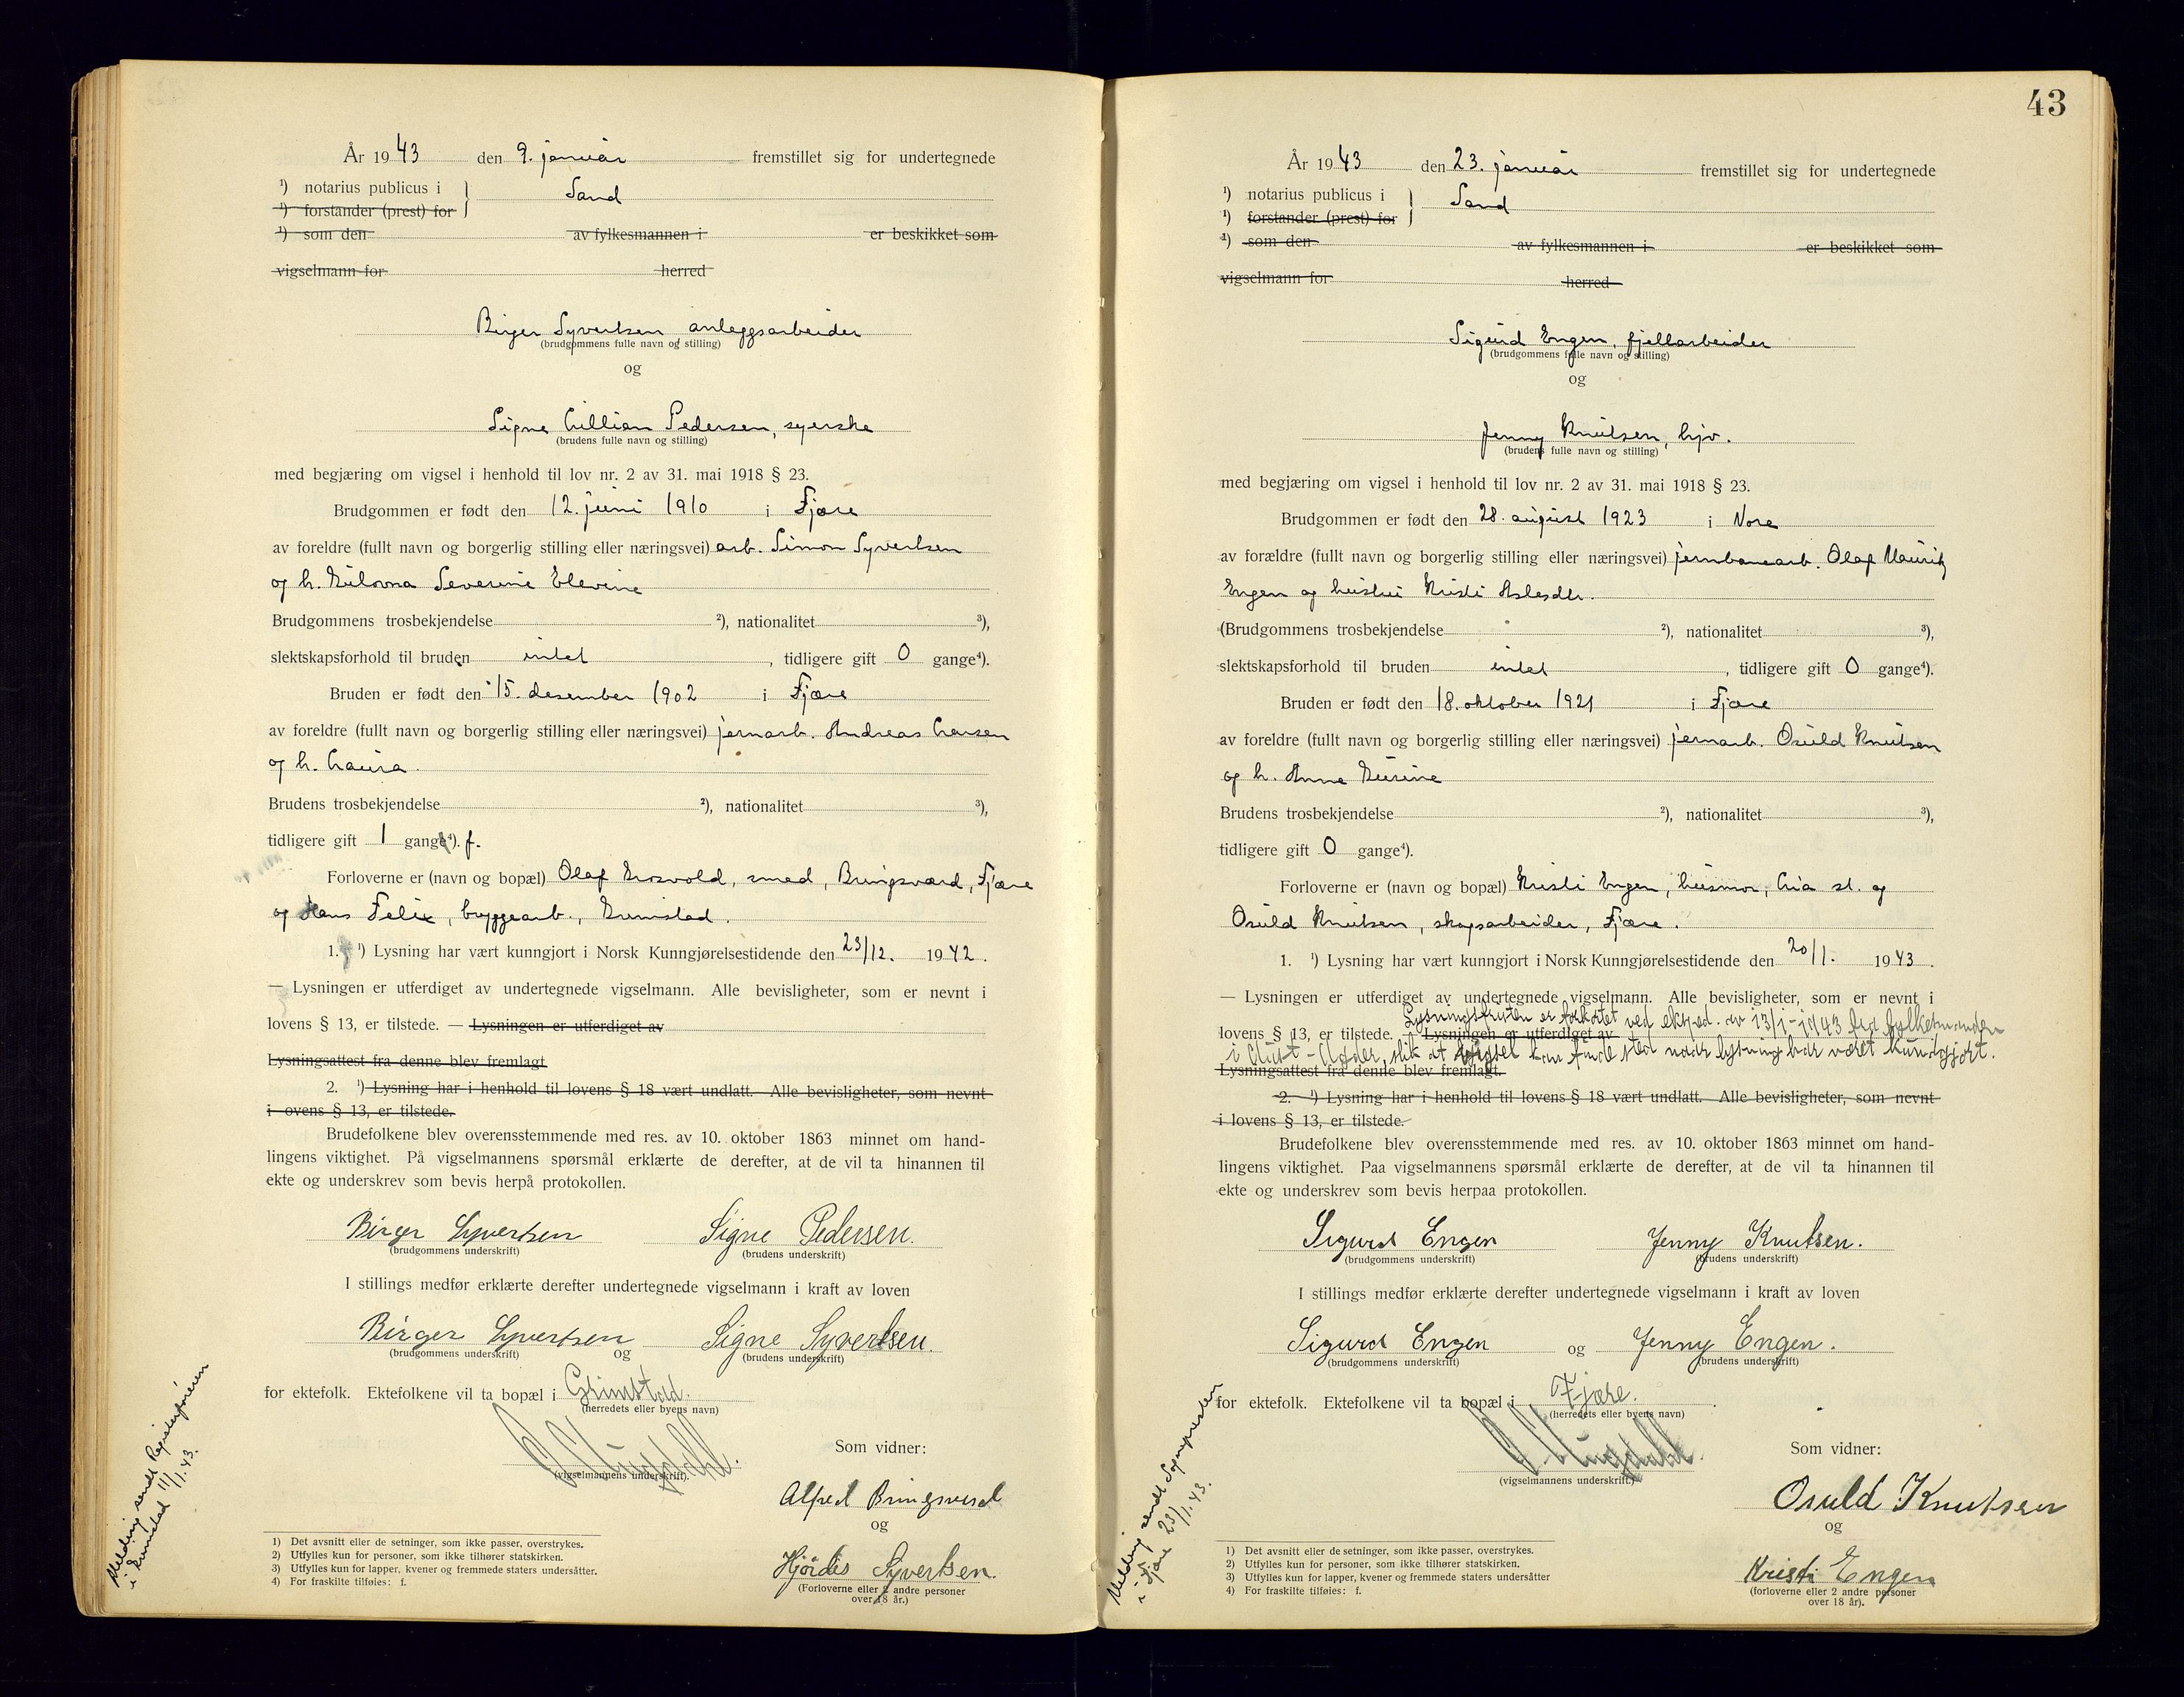 År 1943 den 9. januar fremstillet sig for undertegnede
¹) notarius publicus i } Sand
¹) forstander (prest) for
¹) som den av fylkesmannen i er beskikket som
vigselmann for herred
Birger Syvertsen anleggsarbeider
(brudgommens fulle navn og stilling)
og
Signe Lillian Pedersen, syerske
(brudens fulle navn og stilling)
med begjæring om vigsel i henhold til lov nr. 2 av 31. mai 1918 § 23.
Brudgommen er født den 12. juni 1910 i Fjære
av foreldre (fullt navn og borgerlig stilling eller næringsvei) arb. Simon Syvertsen
og h. Severine Elevine
Brudgommens trosbekjendelse ²), nationalitet ³),
slektskapsforhold til bruden intet, tidligere gift 0 gange⁴).
Bruden er født den 15. desember 1902 i Fjære
av foreldre (fullt navn og borgerlig stilling eller næringsvei) jernarb. Andreas Larsen
og h. Laura.
Brudens trosbekjendelse ²), nationalitet ³),
tidligere gift 1 gange⁴). f.
Forloverne er (navn og bopæl) Olaf Grosvold, smed, Bringsværd, Fjære
og Hans Felix, bryggearb., Grimstad.
1. ¹) Lysning har vært kunngjort i Norsk Kunngjørelsestidende den 23/12. 1942.
— Lysningen er utferdiget av undertegnede vigselmann. Alle bevisligheter, som er nevnt i
lovens § 13, er tilstede. — Lysningen er utferdiget av
Lysningsattest fra denne blev fremlagt
2. ¹) Lysning har i henhold til lovens § 18 vært undlatt. Alle bevisligheter, som nevnt
i ovens § 13, er tilstede.
Brudefolkene blev overensstemmende med res. av 10. oktober 1863 minnet om hand-
lingens viktighet. På vigselmannens spørsmål erklærte de derefter, at de vil ta hinannen til
ekte og underskrev som bevis herpå protokollen.
Birger Syvertsen Signe Pedersen.
(brudgommens underskrift) (brudens underskrift)
I stillings medfør erklærte derefter undertegnede vigselmann i kraft av loven
Birger Syvertsen og Signe Syvertsen.
(brudgommens underskrift) (brudens underskrift)
for ektefolk. Ektefolkene vil ta bopæl i Grimstad.
(herredets eller byens navn)
(vigselmannens underskrift).
Som vidner:
Alfred Bringsverd
og
Hjördis Syvertsen.
(Forloverne eller 2 andre personer
over 18 år.)
1) Det avsnitt eller de setninger, som ikke passer, overstrykes.
2) Utfylles kun for personer, som ikke tilhører statskirken.
3) Utfylles kun for lapper, kvener og fremmede staters undersåtter.
4) For fraskilte tilføies: f.
Melding sendt Registerføreren
i Grimstad 11/1.43.
43
År 1943 den 23. januar fremstillet sig for undertegnede
¹) notarius publicus i } Sand
¹) forstander (prest) for
¹) som den av fylkesmannen i er beskikket som
vigselmann for herred
Sigurd Engen, fjellarbeider
(brudgommens fulle navn og stilling)
og
Jenny Knutsen, hjv.
(brudens fulle navn og stilling)
med begjæring om vigsel i henhold til lov nr. 2 av 31. mai 1918 § 23.
Brudgommen er født den 28. august 1923 i Nore
av forældre (fullt navn og borgerlig stilling eller næringsvei) jernbanearb. Olaf Mauritz
Engen og hustru Kristi Aslesdtr.
(Brudgommens trosbekjendelse ²), nationalitet ³),
slektskapsforhold til bruden intet, tidligere gift 0 gange⁴).
Bruden er født den 18. oktober 1921 i Fjære
av foreldre (fullt navn og borgerlig stilling eller næringsvei) jernarb. Osuld Knutsen
og h. Anne Gurine
Brudens trosbekjendelse ²), nationalitet ³),
tidligere gift 0 gange⁴).
Forloverne er (navn og bopæl) Kristi Engen, husmor, Lia st. og
Osuld Knutsen, skogsarbeider, Fjære.
1. ¹) Lysning har vært kunngjort i Norsk Kunngjørelsestidende den 20/1. 1943.
— Lysningen er utferdiget av undertegnede vigselmann. Alle bevisligheter, som er nevnt i
Lysningsfristen er forkortet ved eksped. av 13/1-1943 fra fylkesmannen
lovens § 13, er tilstede. — Lysningen er utferdiget av
i Aust-Agder, slik at vigsel kan finde sted naar lysning har været kundgjort.
Lysningsattest fra denne blev fremlagt.
2. ¹) Lysning har i henhold til lovens § 18 vært undlatt. Alle bevisligheter, som nevnt
i lovens § 13, er tilstede.
Brudefolkene blev overensstemmende med res. av 10. oktober 1863 minnet om hand-
lingens viktighet. Paa vigselmannens spørsmål erklærte de derefter, at de vil ta hinannen til
ekte og underskrev som bevis herpaa protokollen.
Sigurd Engen Jenny Knutsen.
(brudgommens underskrift) (brudens underskrift)
I stillings medfør erklærte derefter undertegnede vigselmann i kraft av loven
Sigurd Engen og Jenny Engen.
(brudgommens underskrift) (brudens underskrift)
for ektefolk. Ektefolkene vil ta bopæl i Fjære.
(herredets eller byens navn)
(vigselmannens underskrift.)
Som vidner:
Osuld Knutsen
og
Kristi Engen
(forloverne eller 2 andre personer
over 18 år).
1) Det avsnitt eller de setninger, som ikke passer, overstrykes.
2) Utfylles kun for personer, som ikke tilhører statskirken.
3) Utfylles kun for lapper, kvener og fremmede staters undersåtter
4) For fraskilte tilføies: f.
Melding sendt Sognepresten
i Fjære 23/1.43.